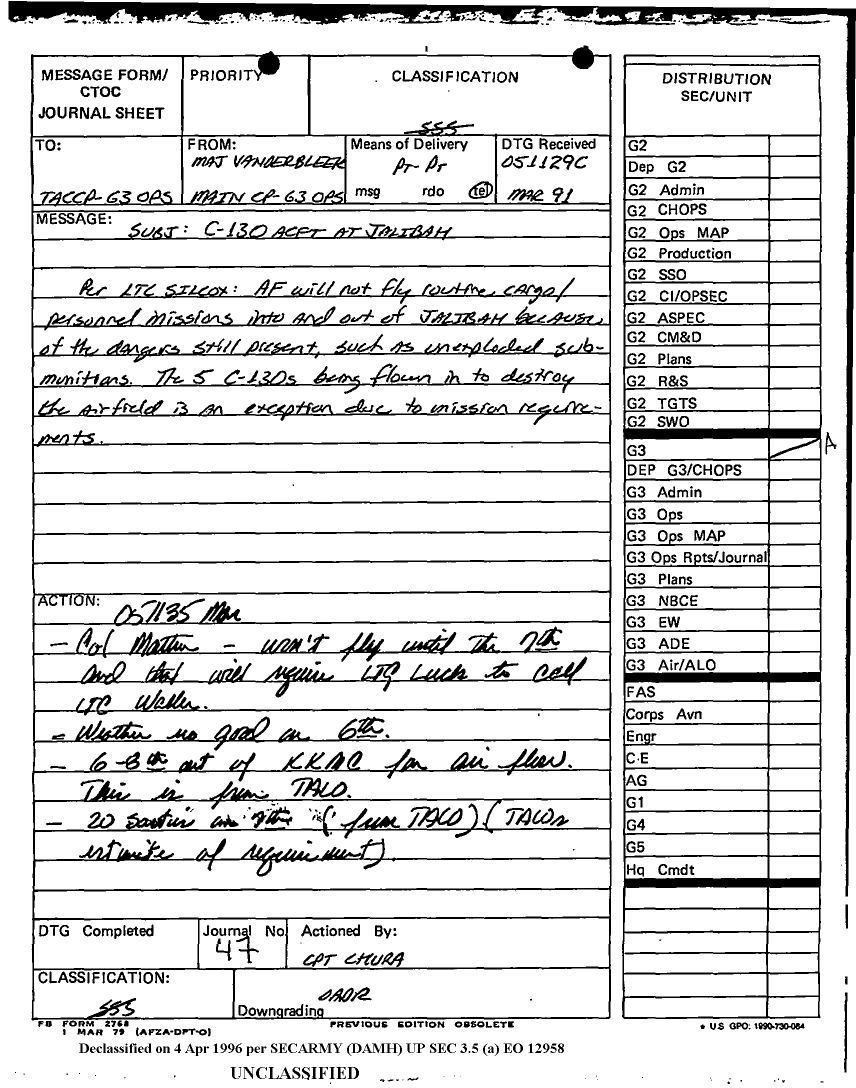 MESSAGE FORM/
CTOC
JOURNAL SHEET
PRIORITY
CLASSIFICATION
SSS
TO:
TACCP-G3 OPS
FROM:
MAJ VANDERBLEEK
MAIN CP-G3 OPS
Means of Delivery
PT-PT
msg rdo tel
DTG Received
051129C
MAR 91
MESSAGE:
SUBJ: C-130 ACFT AT JALIBAH
Per LTC SILCOX: AF will not fly routine cargo/
personnel missions into and out of JALIBAH because
of the dangers still present, such as unexploded sub-
munitions. The 5 C-130s being flown in to destroy
the airfield is an exception due to mission require-
ments.
ACTION:
051135 Mar
- Col - won't fly until the 7th
and that will require LTG Luck to call
LTG Waller.
- Weather no good on 6th.
- 6-8th out of KKMC for air flow.
This is from TALO.
- 20 sorties on 7th (from TALO) (TALOs
estimate of requirement).
DTG Completed
Journal No
47
Actioned By:
CPT CHURA
CLASSIFICATION:
SSS
OADR
Downgrading
FB FORM 2768
1 MAR 79 (AFZA-DPT-O)
PREVIOUS EDITION OBSOLETE
DISTRIBUTION
SEC/UNIT
G2
Dep G2
G2 Admin
G2 CHOPS
G2 Ops MAP
G2 Production
G2 SSO
G2 CI/OPSEC
G2 ASPEC
G2 CM&D
G2 Plans
G2 R&S
G2 TGTS
G2 SWO
G3
A
DEP G3/CHOPS
G3 Admin
G3 Ops
G3 Ops MAP
G3 Ops Rpts/Journal
G3 Plans
G3 NBCE
G3 EW
G3 ADE
G3 Air/ALO
FAS
Corps Avn
Engr
C-E
AG
G1
G4
G5
Hq Cmdt
* U.S GPO: 1990-730-084
Declassified on 4 Apr 1996 per SECARMY (DAMH) UP SEC 3.5 (a) EO 12958
UNCLASSIFIED